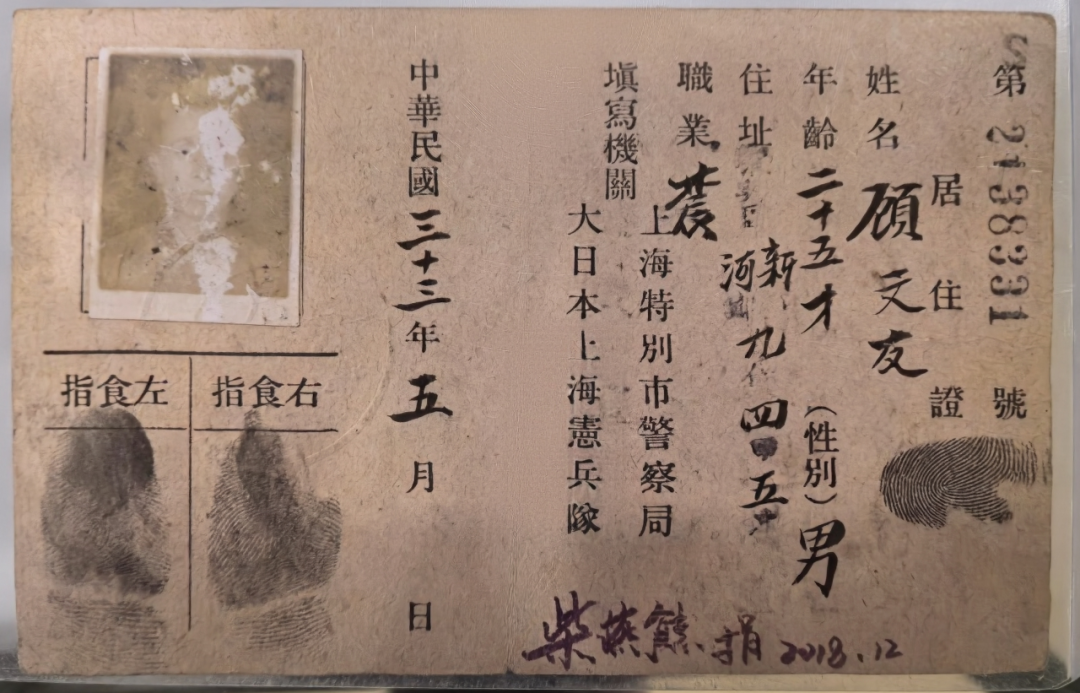 第 213833 號
居住證
姓名 顧文友
年齡 二十五才 (性別) 男
住址 新河 九 四 五
職業 農
填寫機關 上海特別市警察局
大日本上海憲兵隊
中華民國三十三年五月 日
左食指
右食指
捐 2018.12